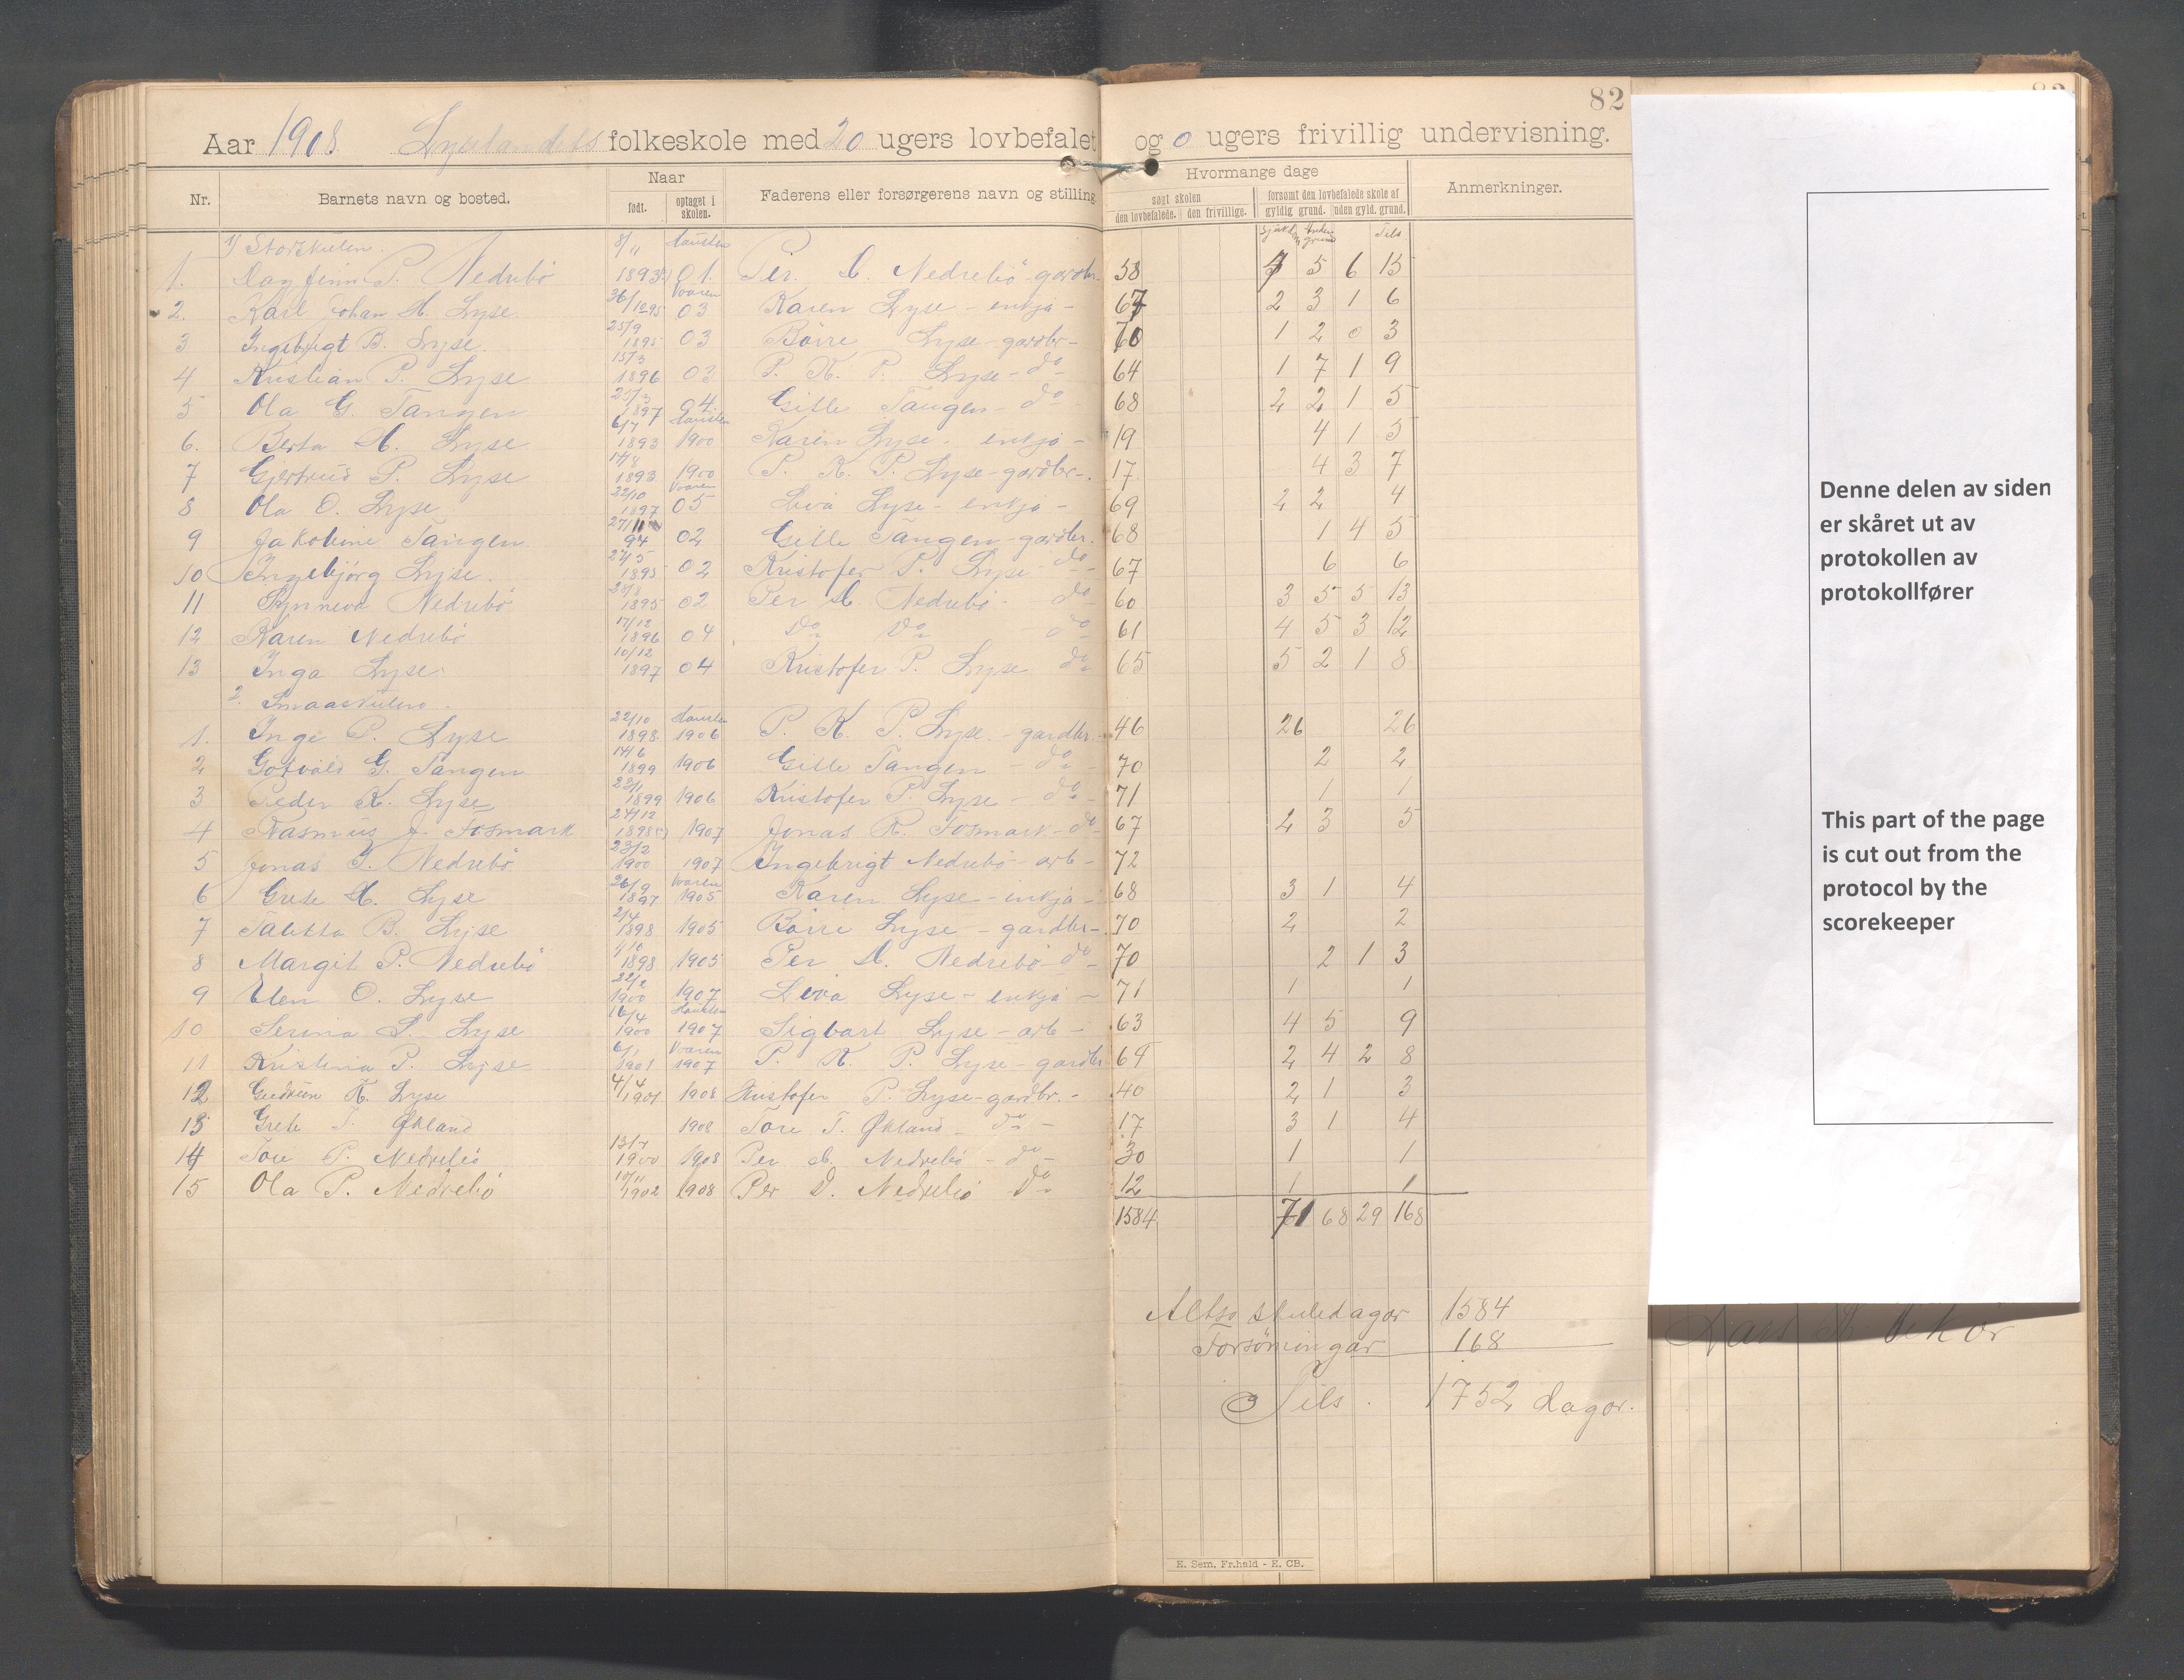 82
Aar 1908 folkeskole med 20 ugers lovbefalet og 0 ugers frivillig undervisning.
Nr. Barnets navn og bosted. Naar født. optaget i skolen. Faderens eller forsørgerens navn og stilling Hvormange dage søgt skolen den lovbefalede. den frivillige. forsømt den lovbefalede skole af gyldig grund. uden gyld. grund. Anmerkninger.
1/ Storskulen. Sils
1. Dagfinn P. Nedrebö 8/11 1893 Hausten 01. Per. D. Nedrebö gardbr. 58 5 6 15
2. Karl Johan H. Lyse. 1895 Vaaren 03 Karen Lyse enkja - 67 2 3 1 6
3 Ingebrigt B. Lyse. 25/9 1895 03 Börre Lyse - gardbr - 70 1 2 0 3
4 Kristian P. Lyse 15/3 1896 03 P. K. P. Lyse - do 64 1 7 1 9
5 Ola G. Tangen 25/3 1897 04. Gitle Tangen - do 68 2 2 1 5
6. Berta H. Lyse 6/7 1893 Hausten 1900 Karen Lyse. enkja - 19 4 1 5
7 Gjertrud P. Lyse 14/8 1893 1900 P. K. P. Lyse - gardbr -. 17 4 3 7
8 Ola O. Lyse 22/10 1897 Vaaren 05 Siva Lyse - enkja - 69 2 2 4
9 Jakobine Tangen 94 02 Gitle Tangen - gardbr. 68 1 4 5
10 Ingebjörg Lyse. 27/5 1895 02 Kristofer P. Lyse do 67 6 6
11 Synneva Nedrebö 1895 02 Per D. Nedrebö - do 60 3 5 5 13
12 Karen Nedrebö 17/12 1896 04 Do Do do 61 4 5 3 12
13 Inga Lyse. 10/12 1897 04 Kristofer P. Lyse do 65 5 2 1 8
2. Smaaskulen.
1. Inge P. Lyse 22/10 1898 Hausten 1906 P. K. P. Lyse. - gardbr. 46 26 26
2 Gotvald G. Tangen 14/6 1899 1906 Gitle Tangen - do 70 2 2
3 Peder K. Lyse 1899 1906 Kristofer P. Lyse - do 71 1 1
4 Rasmus J. Fosmark 24/12 1898 1907 Jonas R. Fosmark - do 67 2 3 5
5 Jonas I. Nedrebö 23/2 1900 1907 Ingebrigt Nedrebö - arb - 72
6 Grete H. Lyse 26/9 1897 Vaaren 1905 Karen Lyse - enkja - 68 3 1 4
7 Taletta B. Lyse 2/4 1898 1905 Börre Lyse - gardbr - 70 2 2
8 Margit P. Nedrebö 1898 1905 Per D. Nedrebö do 70 2 1 3
9 Elen O. Lyse 22/2 1900 1907 Siva Lyse - enkja - 71 1 1
10 Serina S. Lyse 16/4 1900 Hausten 1907 Sigbart Lyse - arb - 63 4 5 9
11 Kristina P. Lyse 6/1 1901 Vaaren 1907 P. K. P. Lyse - gardbr 64 2 4 2 8
12 Gudrun K. Lyse 4/4 1901 1908 Kristofer P. Lyse - gardbr. - 40 2 1 3
13 Grete T. Økland 1908 Tore T. Økland - do - 17 3 1 4
14 Tore P. Nedrebö 1900 1908 Per D. Nedrebö - do - 30 1 1
15 Ola P. Nedrebö 10/11 1902 1908 Per D. Nedrebö do 12 1 1
1584 71 68 29 168
Altso skuledagar 1584
Forsömingar 168
Sils. 1752 dagar.
E. Sem, Fr.hald - E. CB.
Denne delen av siden
er skåret ut av
protokollen av
protokollfører
This part of the page
is cut out from the
protocol by the
scorekeeper